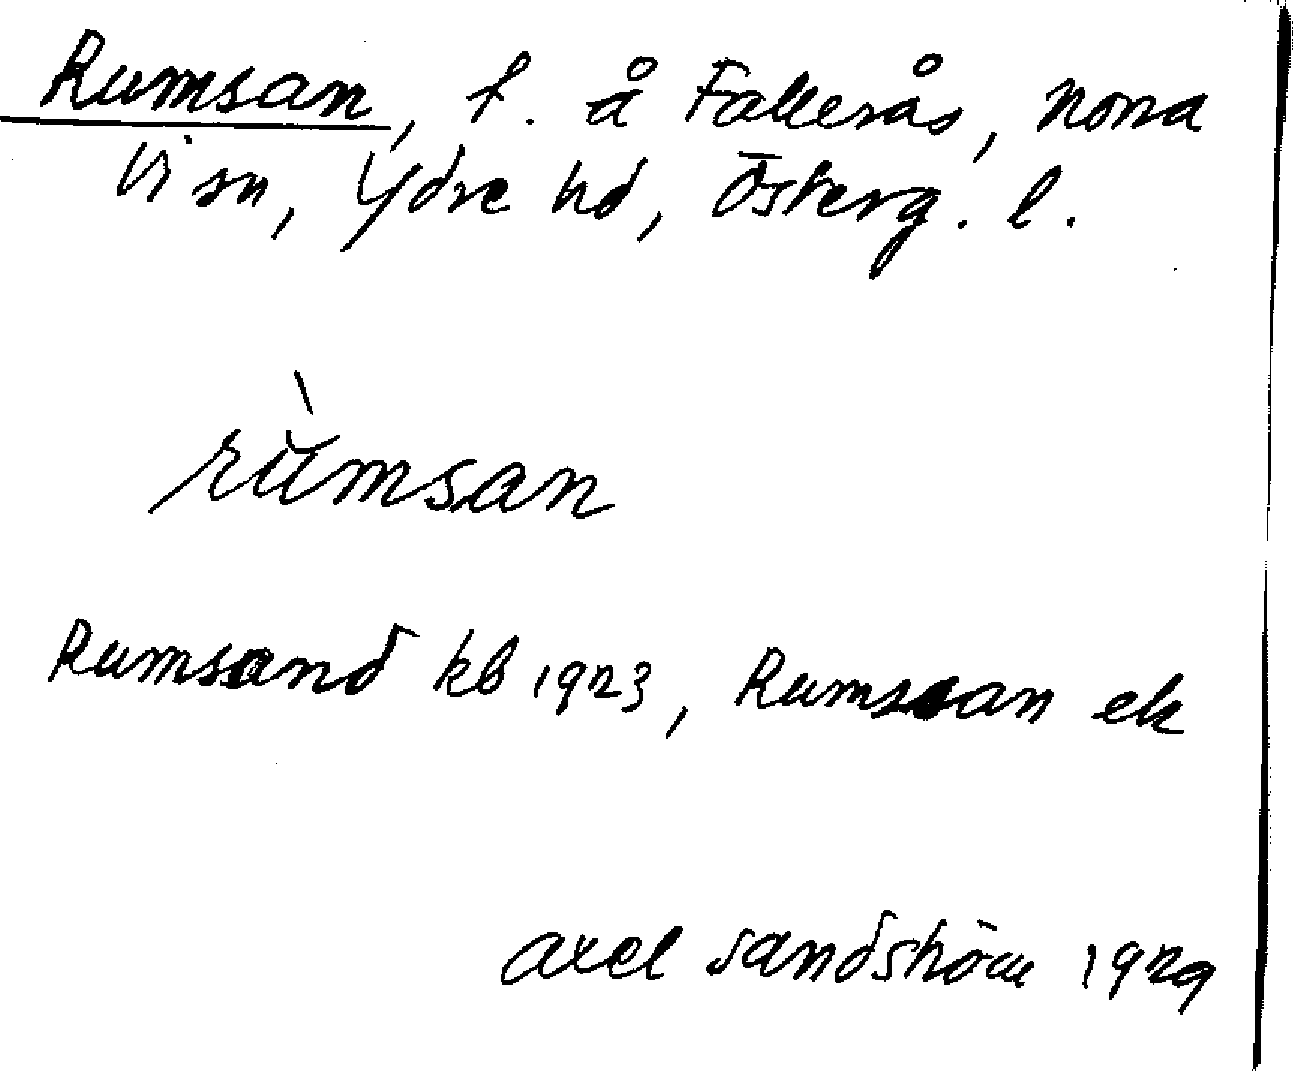 Rumsan, t. å Fallerås, norra
Vi sn, Ydre hd, Österg. l.
rùmsan
Rumsand kb 1923, Rumsan ek
axel sandström 1929